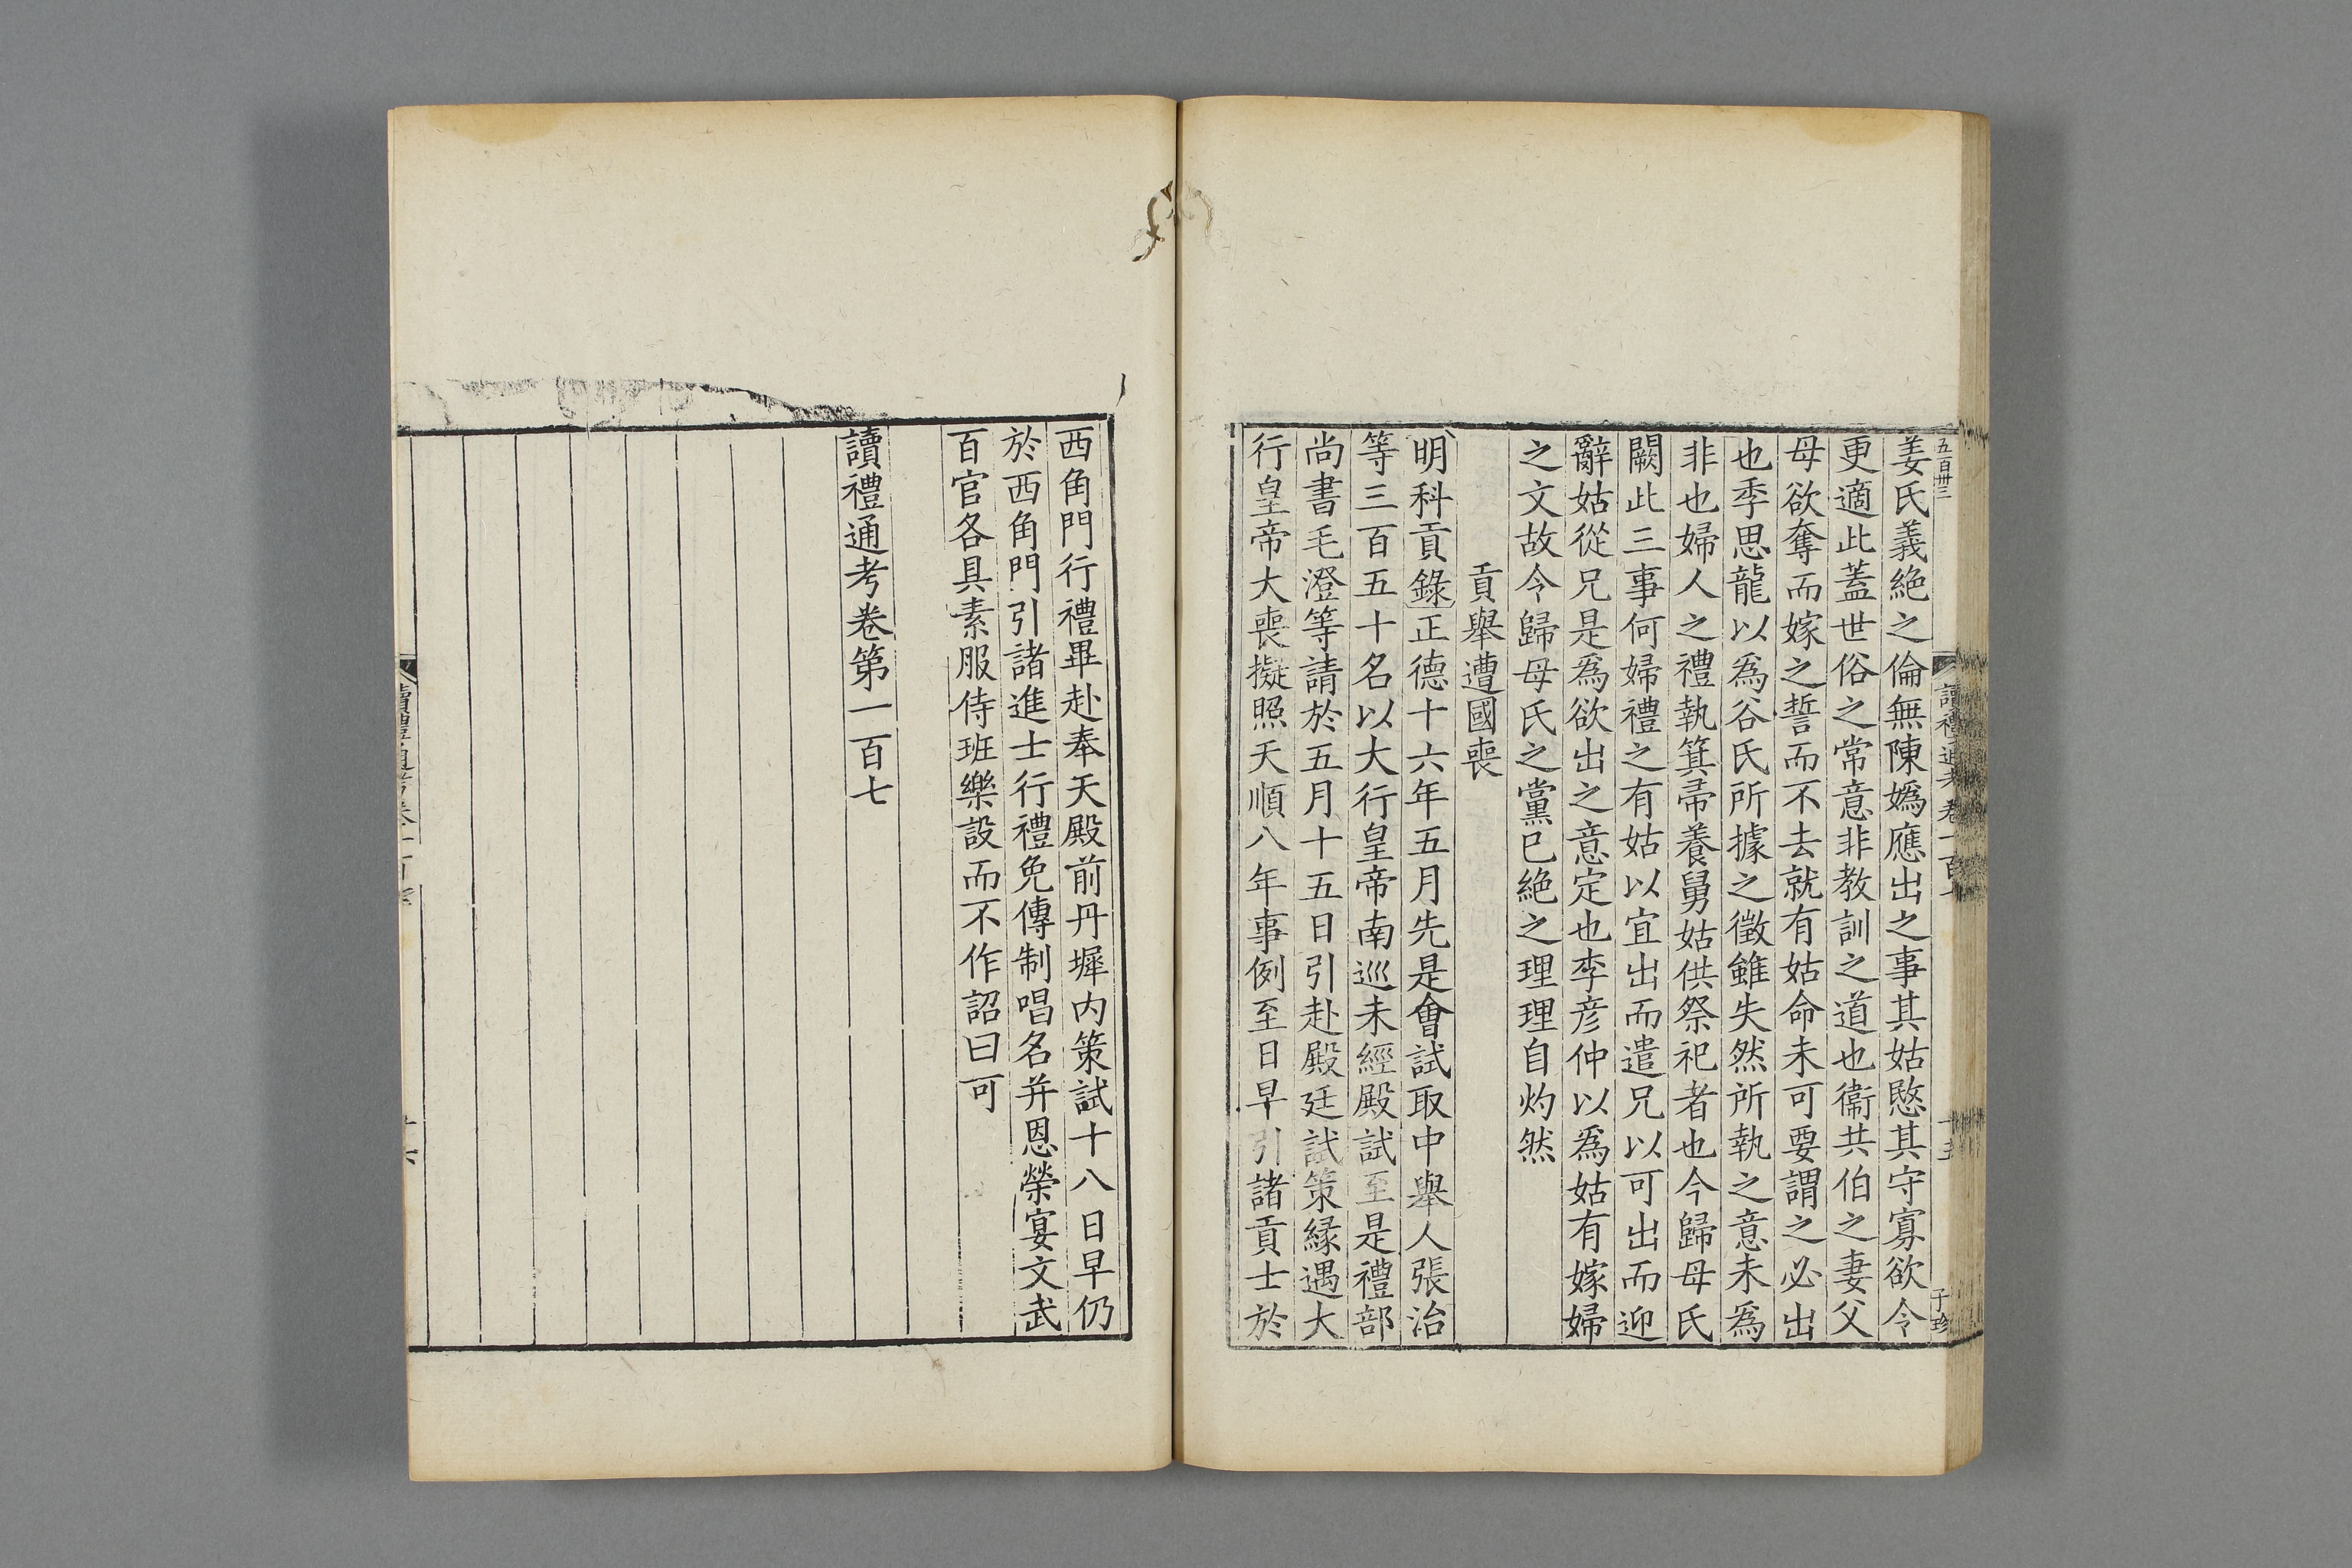 五百卌三
讀禮通考卷一百七
十五
子珍
姜氏義絕之倫無陳嬀應出之事其姑愍其守寡欲令
更適此蓋世俗之常意非教訓之道也衞共伯之妻父
母欲奪而嫁之誓而不去就有姑命未可要謂之必出
也季思龍以爲谷氏所據之徵雖失然所執之意未爲
非也婦人之禮執箕帚養舅姑供祭祀者也今歸母氏
闕此三事何婦禮之有姑以宜出而遣兄以可出而迎
辭姑從兄是爲欲出之意定也李彦仲以爲姑有嫁婦
之文故令歸母氏之黨已絕之理理自灼然
貢舉遭國喪
明科貢錄正德十六年五月先是會試取中舉人張治
等三百五十名以大行皇帝南巡未經殿試至是禮部
尚書毛澄等請於五月十五日引赴殿廷試策緣遇大
行皇帝大喪擬照天順八年事例至日早引諸貢士於
西角門行禮畢赴奉天殿前丹墀内策試十八日早仍
於西角門引諸進士行禮免傳制唱名并恩榮宴文武
百官各具素服侍班樂設而不作詔曰可
讀禮通考卷第一百七
讀禮通考卷一百七
十六